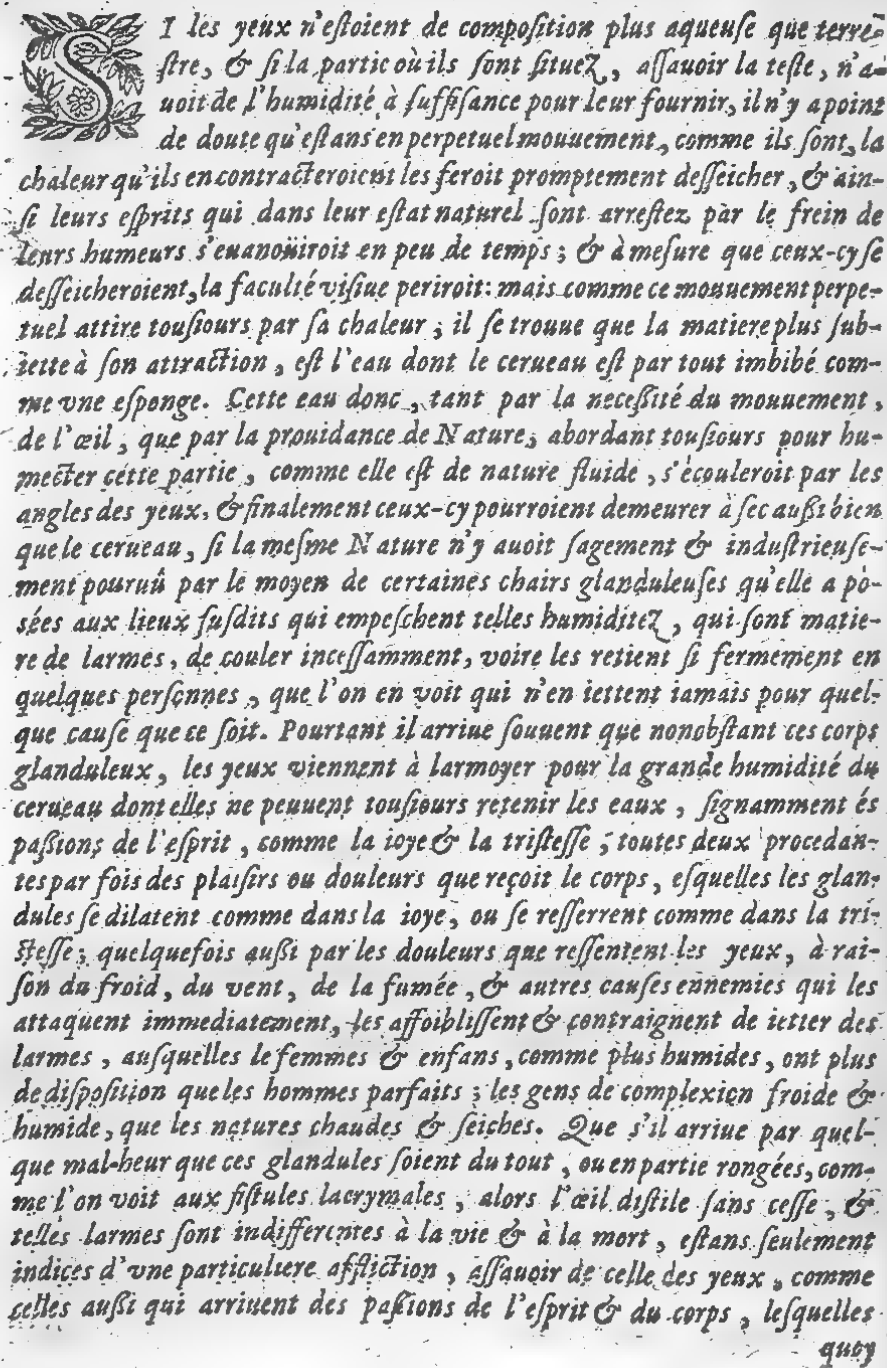 SI les yeux n'eſtoient de compoſition plus aqueuſe que terre-
ſtre, & ſi la partie où ils ſont ſituez, aſſauoir la teſte, n'a-
uoit de l'humidité à ſuffiſance pour leur fournir, il n'y a point
de doute qu'eſtans en perpetuel mouuement, comme ils ſont, la
chaleur qu'ils en contracteroient les feroit promptement deſſeicher, & ain-
ſi leurs eſprits qui dans leur eſtat naturel ſont arreſtez par le frein de
leurs humeurs s'euanoüiroit en peu de temps; & à meſure que ceux-cy ſe
deſſeicheroient, la faculté viſiue periroit: mais comme ce mouuement perpe-
tuel attire touſiours par ſa chaleur; il ſe trouue que la matiere plus ſub-
iette à ſon attraction, eſt l'eau dont le cerueau eſt par tout imbibé com-
me vne eſponge. Cette eau donc, tant par la neceßité du mouuement,
de l'œil, que par la prouidance de Nature, abordant touſiours pour hu-
mecter cette partie, comme elle eſt de nature fluide, s'écouleroit par les
angles des yeux, & finalement ceux-cy pourroient demeurer à ſec außi bien
que le cerueau, ſi la meſme Nature n'y auoit ſagement & induſtrieuſe-
ment pouruû par le moyen de certaines chairs glanduleuſes qu'elle a po-
sées aux lieux ſuſdits qui empeſchent telles humiditez, qui ſont matie-
re de larmes, de couler inceſſamment, voire les retient ſi fermement en
quelques perſonnes, que l'on en voit qui n'en iettent iamais pour quel-
que cauſe que ce ſoit. Pourtant il arriue ſouuent que nonobſtant ces corps
glanduleux, les yeux viennent à larmoyer pour la grande humidité du
cerueau dont elles ne peuuent touſiours retenir les eaux, ſignamment és
paßions de l'eſprit, comme la ioye & la triſteſſe; toutes deux procedan-
tes par fois des plaiſirs ou douleurs que reçoit le corps, eſquelles les glan-
dules ſe dilatent comme dans la ioye, ou ſe reſſerrent comme dans la tri-
ſteſſe; quelquefois außi par les douleurs que reſſentent les yeux, à rai-
ſon du froid, du vent, de la fumée, & autres cauſes ennemies qui les
attaquent immediatement, les affoibliſſent & contraignent de ietter des
larmes, auſquelles le femmes & enfans, comme plus humides, ont plus
de diſpoſition que les hommes parfaits; les gens de complexion froide &
humide, que les natures chaudes & ſeiches. Que s'il arriue par quel-
que mal-heur que ces glandules ſoient du tout, ou en partie rongées, com-
me l'on voit aux fiſtules lacrymales, alors l'œil diſtile ſans ceſſe, &
telles larmes ſont indifferentes à la vie & à la mort, eſtans ſeulement
indices d'vne particuliere affliction, aſſauoir de celle des yeux, comme
celles außi qui arriuent des paßions de l'eſprit & du corps, leſquelles
quoy